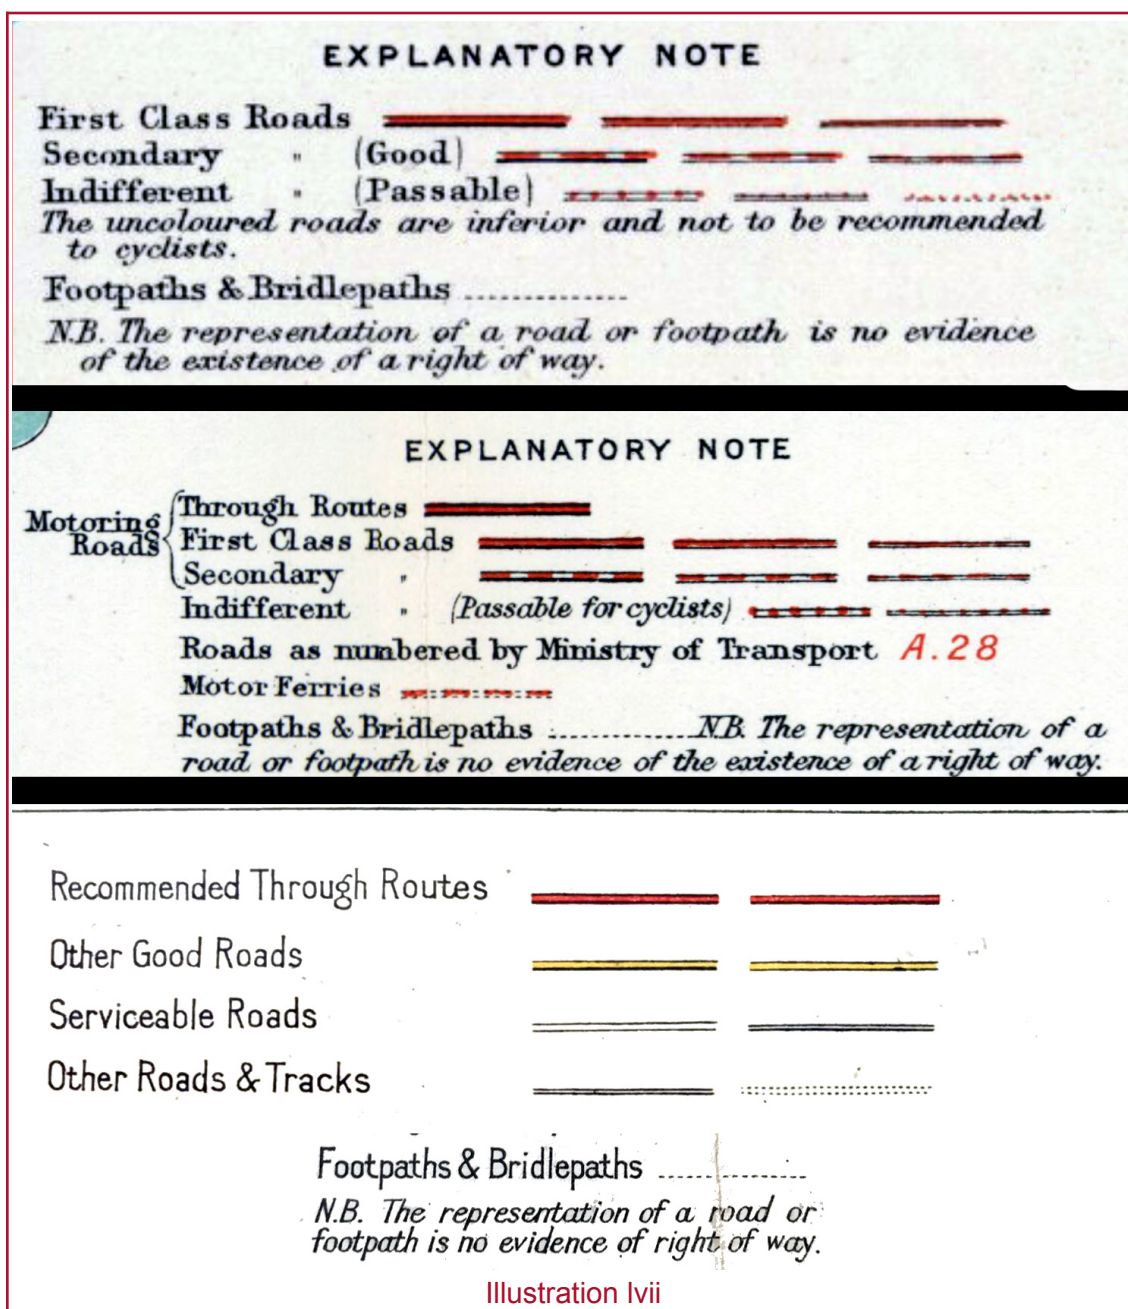 EXPLANATORY NOTE
First Class Roads
Secondary " (Good)
Indifferent " (Passable)
The uncoloured roads are inferior and not to be recommended
to cyclists.
Footpaths & Bridlepaths
N.B. The representation of a road or footpath is no evidence
of the existence of a right of way.
EXPLANATORY NOTE
Motoring Roads
Through Routes
First Class Roads
Secondary "
Indifferent " (Passable for cyclists)
Roads as numbered by Ministry of Transport A.28
Motor Ferries
Footpaths & Bridlepaths N.B. The representation of a
road or footpath is no evidence of the existence of a right of way.
Recommended Through Routes
Other Good Roads
Serviceable Roads
Other Roads & Tracks
Footpaths & Bridlepaths
N.B. The representation of a road or
footpath is no evidence of right of way.
Illustration lvii